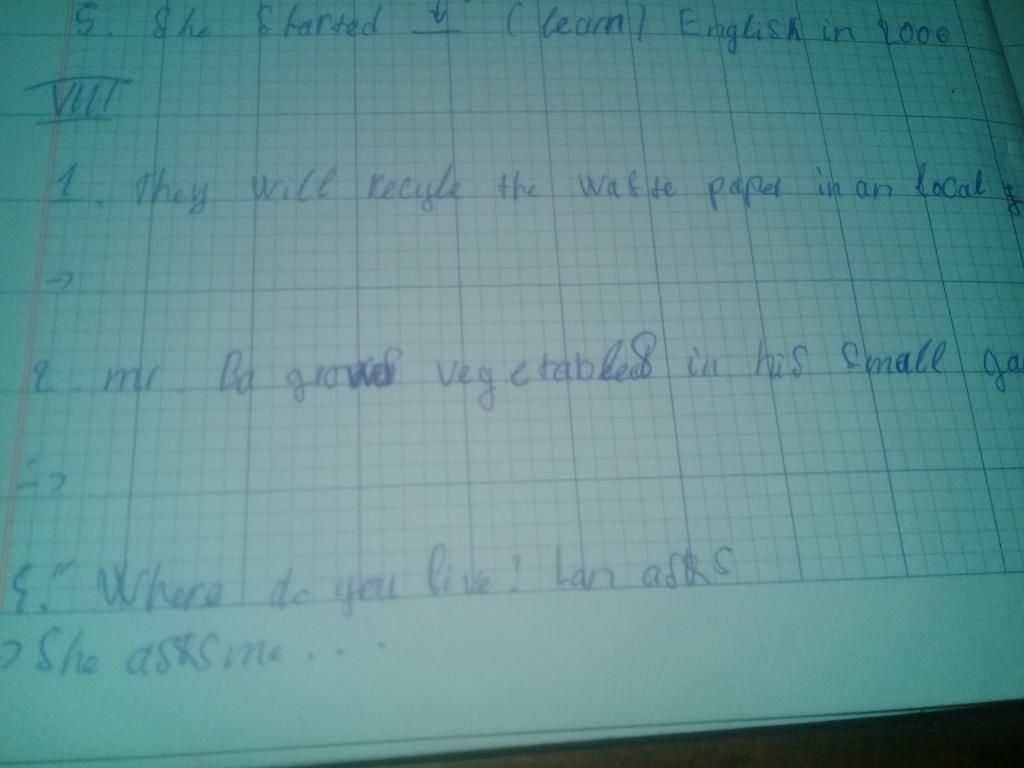 5. She Started (learn) English in 2000
VIII
1. They will recyle the waste paper in an local
→
2 mr Ba grows vegetables in his small ga
=>
" Where do you live? Lan asks
→ She asks me ...